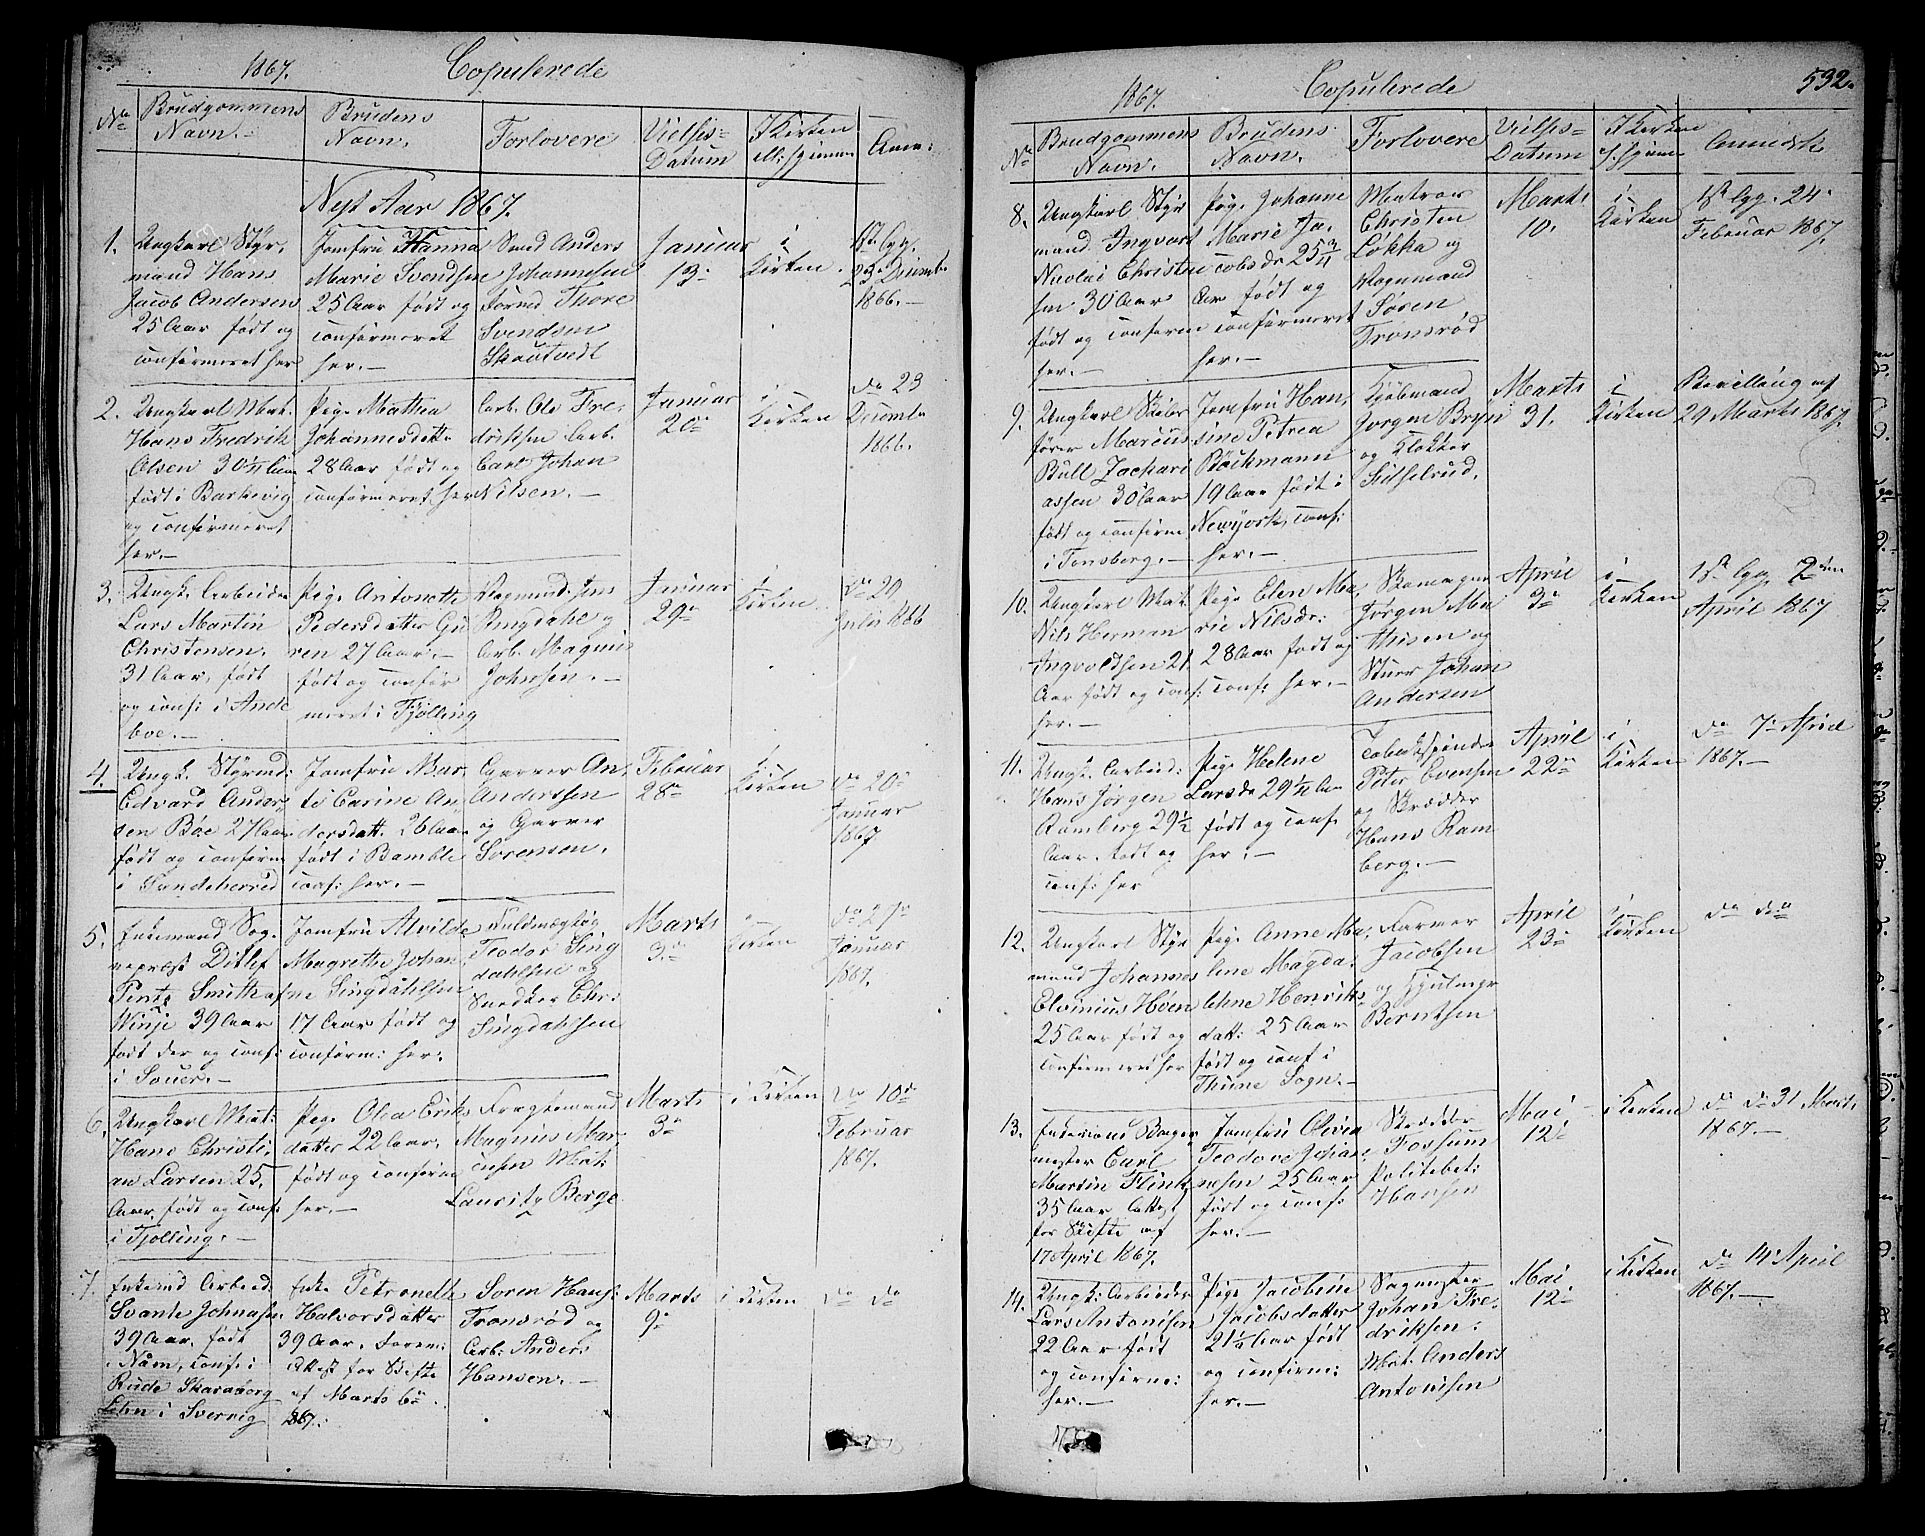 1867. Copulerede
No Brudgommens Navn.- Brudens Navn. Forlovere Vielses-Datum I Kirken ell: hjemme Anm:
Nyt Aar 1867.
1. Ungkarl Styr,
mand Hans
Jacob Andersen
25 Aar født og
confirmeret her
Jomfru Hanna
Marie Svendsen
25 Aar født og
confirmeret
her.-
Smed Anders
Johannesen
Formd Thore
Svendsen
Skautvedt
Januar
13.
i
Kirken.
1st lyg.
23de Decmb.
1866.-
2. Ungkarl Mat.
Hans Fredrik
Olsen 30 1/4 Aar
født i Barkevig
og confirmeret
her.-
Pige Mathea
Johannesdatt.
28 Aar født og
confirmeret her
Arb. Ole Fre,
driksen Arb.
Carl Johan
Nilsen.-
Januar
20de
i
Kirken
do 23
Decmb.
1866.
3. Ungk. Arbeider
Lars Martin
Christensen.
31 Aar, født
og conf: i Ande
boe.-
Pige Antonette
Pedersdatter Gu
ren 27 Aar.-
født og confir
meret i Tjølling
Vognmd. Jens
Ringdahl og
Arb. Magnus
Johnsen.-
Januar
29de
i
Kirken
do 29
Juli 1866
4. Ungk. Styrmd:
Edvard Ander,
sen Bøe 27 Aar
født og confirm
i Sandeherred
Jomfru Mar,
te Carine An,
dersdatt. 26 Aar
født i Bamble
conf: her.-
Garver An,
Anderssen
og Garver
Sørensen.
Februar
28de
i
Kirken
do 20de
Januar
1867
5. Enkemand Sog,
nepræst Ditlef
Pentz Smith af
Winje 39 Aar
født der og conf:
i Souer.-
Jomfru Alvilde
Magrethe Johan,
ne Singdahlsen
17 Aar født og
confirm: her:
Fuldmægtig
Teodor Sing
dahlsen og
Snedker Chr:
Singdahlsen
Marts
3de
i
Kirken
do 27de
Januar
1867.
6. Ungkarl Mat:
Hans Christi,
an Larsen 25,
Aar, født og conf:
i Tjølling.-
Pige Olea Eriks
datter 22 Aar,
født og confirm
her.-
Fragtemand
Magnus Mar,
cusen Mat:
Lauritz Berge
Marts
3de
i Kirken
do 10de
Februar
1867.
7. Enkemd Arbeid:
Svante Johnasen
39 Aar, født
i Nåm, conf: i
Rude Skaraborg
Lehn i Sverrig
Enke Petronelle
Halvorsdatter
39 Aar. Forem:
Attest for Skifte
af Marts 6te
1867.
Søren Hans:
Tronsrød og
Arb: Anders
Hansen.-
Marts
9de
i Kirken
do do
1867. Copulerede 532.
No Brudgommens Navn. Brudens Navn. Forlovere Vielses-Datum I Kirken ell. hjemme Anmærk
8. Ungkarl Styr
mand Ingvart
Nicolai Christen
sen 30 Aar
født og confirm
her.-
Pige Johanne
Marie Ja,
cobsdr 25 3/4
Aar født og
confirmeret
her.-
Matros
Christen
Løkka og
Vognmand
Søren
Tronsrød
Marts
10.
i
Kirken
1st lyg. 24de
Februar 1867.
9. Ungkarl Skibs
fører Marcus
Bull Zachari
assen 30 Aar
født og confirm
i Tønsberg.-
Jomfru Han,
sine Petrea
Bachmann
19 Aar født i
Newyork, conf:
her.-
Kjøbmand
Jørgen Bryn
og Klokker
Sidselrud.
Marts
31.
i
Kirken
Bevilling af
29 Marts 1867.
10. Ungkarl Mat.
Nils Herman
Ingvoldsen 21.
Aar født og conf:
her.-
Pige Elen Ma,
rie Nilsdr:
28 Aar født og
conf: her.-
Skomager
Jørgen Ma
thisen og
Stuer Johan
Andersen
April
3de
i
Kirken
1st lyg. 2den
April 1867
11. Ungk. Arbeid:
Hans Jørgen
Ramberg 29 1/2
Aar. født og
conf: her
Pige Helene
Larsdr 29 1/4 Aar
født og conf:
her.-
Tobakspinder
Peter Evensen
og Skrædder
Hans Ram
berg.-
April
22de
i
Kirken
do 7de April
1867.-
12. Ungkarl Styr
mand Johannes
Elvinius Høen
25 Aar født og
confirmeret her
Pige Anne Ma,
lene Magda,
lehne Henriks,
datt: 25 Aar
født og conf i
Thune Sogn.-
Farver
Jacobsen
og Hjulmgr
Berntsen
April
23de
i
Kirken
do do
13. Enkemand Bager
mester Carl
Martin Flint,
35 Aar Attest
for Skifte af
17 April 1867.
Jomfru Olivia
Teodore Johan,
nesen 25 Aar
født og conf:
her.-
Skrædder
Fossum
Politebet:
Hansen
Mai
12te
i Kirken
do do 31 Marts
1867.-
14. Ungk: Arbeider
Lars Antonisen
22 Aar født
og confirm:
her.-
Pige Jacobine
Jacobsdatter
21 1/2 Aar født
og confirm:
her.-
Bogmester
Johan Fre,
driksen:
Mat: Anders
Antonisen
Mai
12te
i Kirken
do 14 April
1867.-